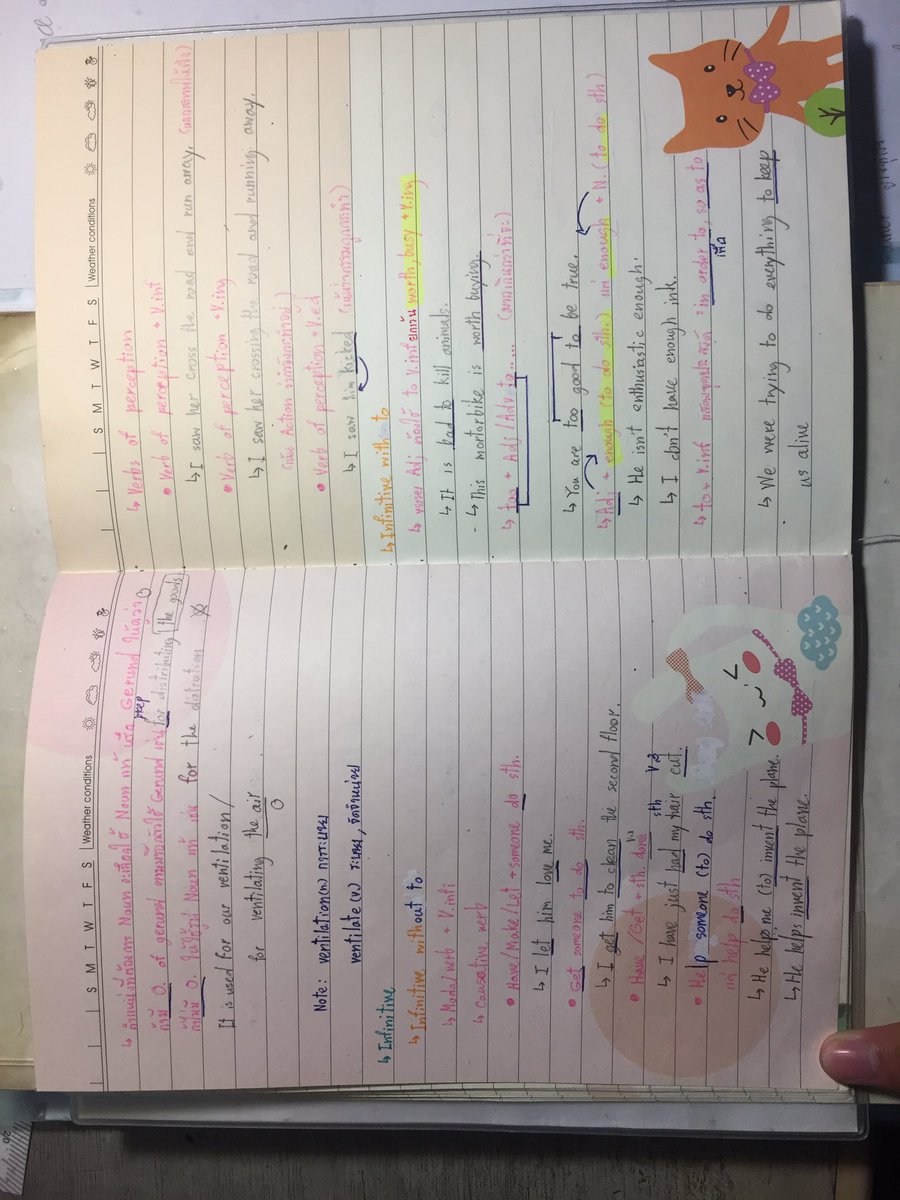 S M T W T F S Weather conditions
↳ ตำแหน่งที่ต้องการ Noun จะเลือกใช้ Noun แท้ หรือ Gerund ให้ดูว่า
prep
ถ้ามี O. of gerund ตามมาต้องใช้ Gerund เช่น for distributing the goods
ถ้าไม่มี O. ให้ใช้ Noun แท้ เช่น for the distrution
It is used for our ventilation/
for ventilating the air
O
Note: ventilation(n) การระบาย
ventilate (v.) ระบาย,
↳ Infinitive
↳ Infinitive without to
↳ Modal verb + V.infi
↳ Causative verb
• Have/Make/Let + someone do sth.
↳ I let him love me.
• Get someone to do sth.
↳ I get him to clean the second floor.
• Have/Get + sth. done V3
sth V3
↳ I have just had my hair cut.
• Help someone (to) do sth.
แต่ help do sth
↳ He help me (to) invent the plane.
↳ He helps invent the plane.
S M T W T F S Weather conditions
↳ Verbs of perception
• Verb of perception + V.inf
↳ I saw her cross the road and run away.
• Verb of perception + V.ing
↳ I saw her crossing the road and running away.
(เน้น Action ว่ากำลังกระทำอยู่)
• Verb of perception + V.ed
↳ I saw him kicked (เน้นว่ากรรมถูกกระทำ)
↳ Infinitive with to
↳ หลัง Adj ต้องใช้ to V.inf ยกเว้น worth, busy + V.ing
↳ It is bad to kill animals.
- ↳ This mortorbike is worth buying.
↳ too + Adj/Adv to....
↳ You are too good to be true.
↳ Adj + enough (to do sth.) แต่ enough + N. (to do sth)
↳ He isn't enthusiastic enough.
↳ I don't have enough ink.
↳ to + V.inf แสดงจุดประสงค์ = in order to, so as to
เพื่อ
↳ We were trying to do everything to keep
us alive